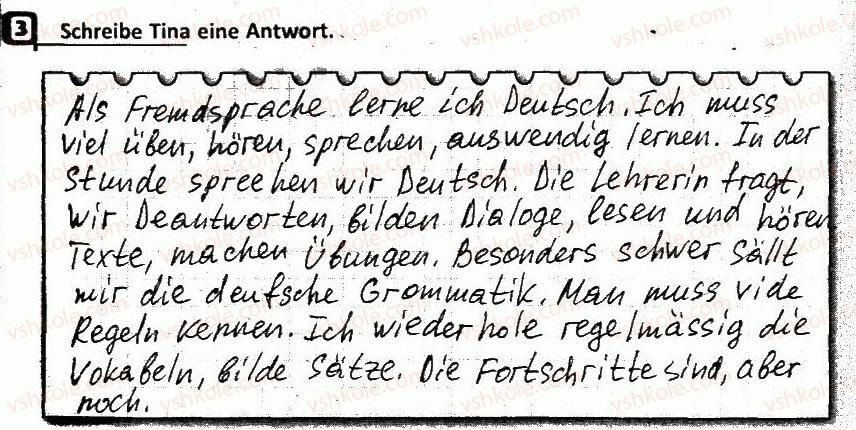 3 Schreibe Tina eine Antwort.
Als Fremdsprache lerne ich Deutsch. Ich muss
viel üben, hören, sprechen, auswendig lernen. In der
Stunde spreehen wir Deutsch. Die Lehrerin fragt,
wir Deantworten, bilden Dialoge, lesen und hören
Texte, machen Übungen. Besonders schwer sällt
mir die deutsche Grommatik. Man muss vide
Regeln kennen. Ich wiederhole regelmässig die
Vokabeln, bilde Sätze. Die Fortschritte sind, aber
noch.